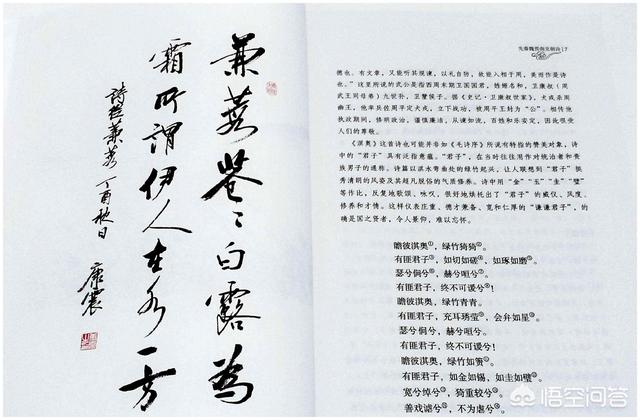 蒹葭蒼〻白露為
霜所謂伊人在水一方
詩经蒹葭 丁酉秋日
康震
先秦魏晋南北朝诗 17
德也。有文章，又能听其规谏，以礼自防，故能入相于周，美而作是诗
也。”这里所说的武公是指西周末期卫国国君，姓姬名和，卫康叔（周
武王同母弟）九世孙，卫釐侯子。据《史记·卫康叔世家》，犬戎杀周
幽王，他率兵佐周平定犬戎，立下战功，被周平王封为“公”。相传他
执政期间，修明政治，谨慎廉洁，从谏如流，百姓和乐安定，因此很受
人们的尊敬。
《淇奥》这首诗也可能并非如《毛诗序》所说有特指的赞美对象，诗
中的“君子”具有泛指意蕴。“君子”，在当时往往用作对统治者和贵
族男子的通称。这首篇以淇水弯曲处的绿竹起兴，让人联想到“君子”挺
秀清朗的风姿及其超凡脱俗的气质修养。诗中用“金”“玉”“圭”“璧”
等作比，反复地歌颂、咏叹，很好地烘托出了“君子”的威仪、风度、
修养和才情。这样仪表庄重、德才兼备、宽和仁厚的“谦谦君子”，的
确是国之贤者，令人景仰，难以忘怀。
瞻彼淇奥①，绿竹猗猗②。
有匪君子③，如切如磋④，如琢如磨⑤。
瑟兮僩兮⑥，赫兮咺兮⑦。
有匪君子，终不可谖兮⑧！
瞻彼淇奥，绿竹青青。
有匪君子，充耳琇莹⑨，会弁如星⑩。
瑟兮僩兮，赫兮咺兮。
有匪君子，终不可谖兮！
瞻彼淇奥，绿竹如箦⑪。
有匪君子，如金如锡，如圭如璧⑫。
宽兮绰兮⑬，猗重较兮⑭。
善戏谑兮⑮，不为虐兮⑯。
悟空问答